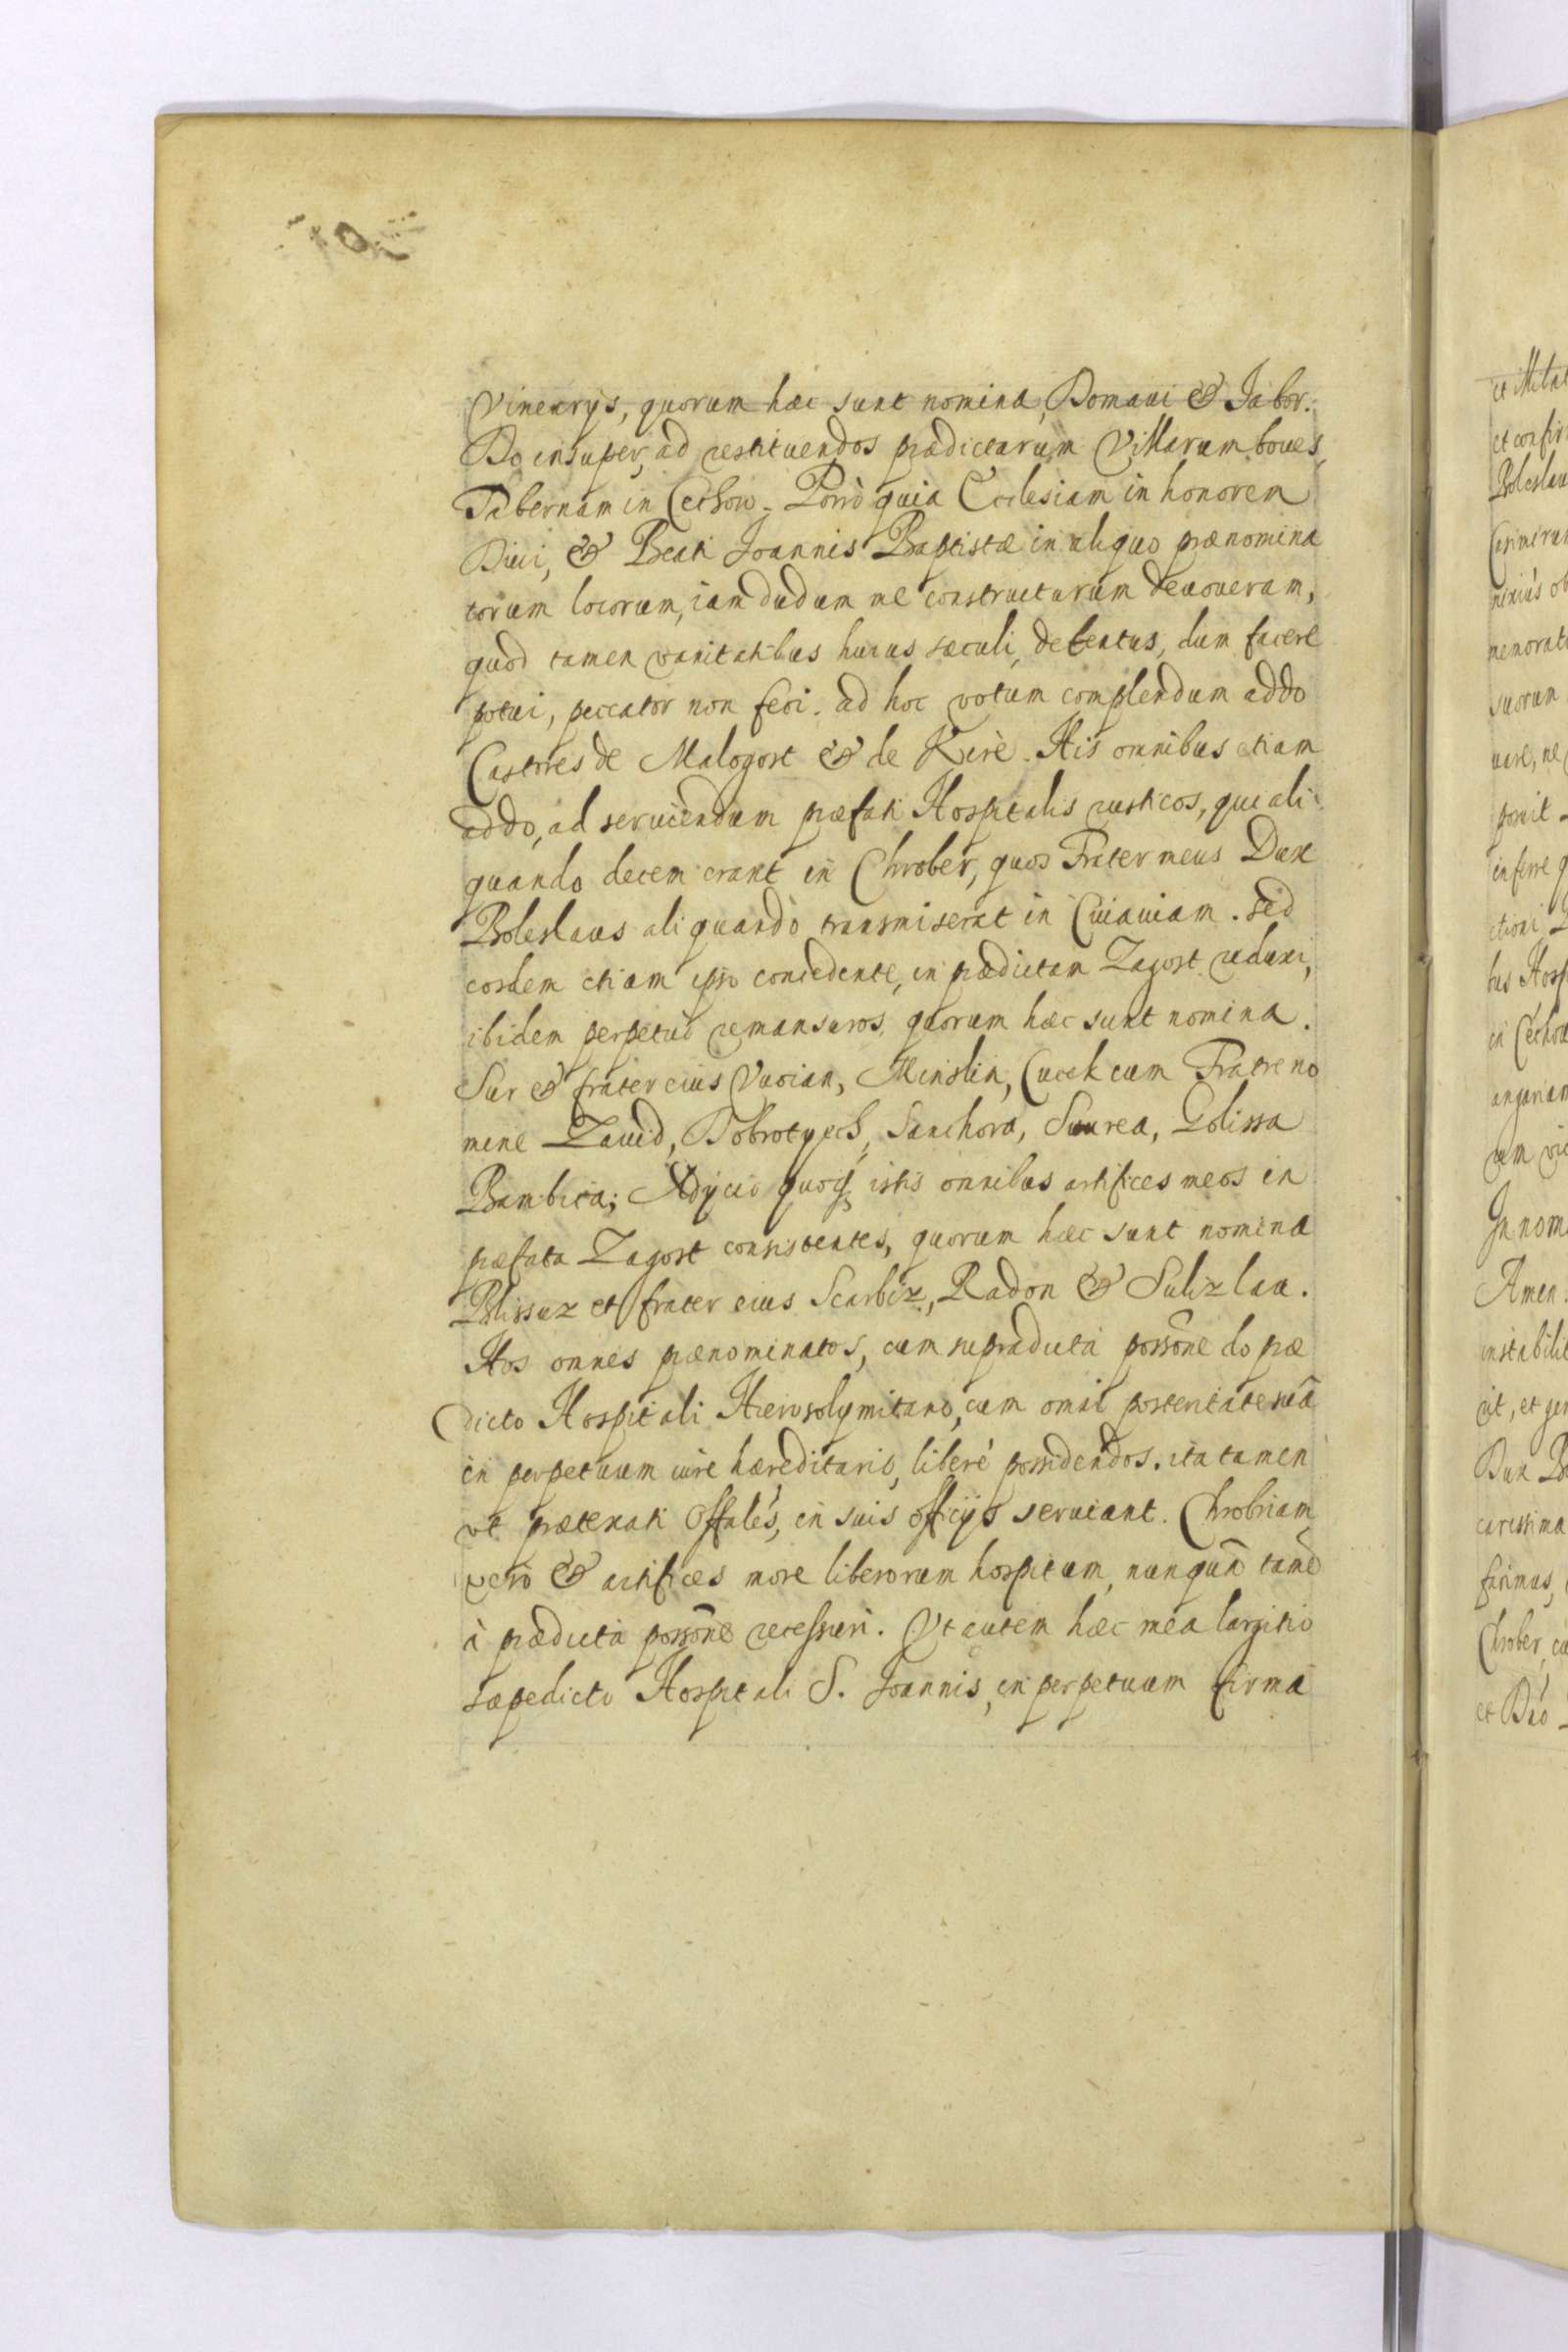 Vinearijs, quorum hæc sunt nomina, Domaui & Jabor.
Do insuper, ad restituendos prædictarum Villarum boues,
Tabernam in Cechow. Porrò quia Ecclesiam in honorem
Diui, & Beati Joannis Baptistæ in aliquo prænomina
torum locorum, iam dudum me constructurum deuoueram,
quod tamen vanitatibus huius sæculi, detentus, dum facere
potui, peccator non feci. ad hoc votum complendum addo
Castores de Malogost & de Kirè. His omnibus etiam
addo, ad seruiendum præfati Hospitalis rusticos, qui ali
quando decem erant in Chrober, quos Frater meus Dux
Boleslaus aliquandò transmiserat in Cuiauiam. sed
eosdem etiam ipso concedente, in prædictam Zagost reduxi,
ibidem perpetuò remansuros, quorum hæc sunt nomina.
Sur & frater eius Vuoian, Minslin, Cucek cum Fratre no
mine Zauid, Dobrotyech, Sanchora, Suurea, Golissa
Bambica; Adijcio quoq, istis omnibus artifices meos in
præfata Zagost consistentes, quorum hæc sunt nomina
Blissuz et frater eius Scarbiz, Radon & Sulizlau.
Hos omnes prænominatos, cum supradicta possone do præ
dicto Hospitali Hierosolymitano, cum omni posteritate suâ
in perpetuum iure hæreditario, liberè possidendos. ita tamen
vt præternati Offales, in suis officijs seruiant. Chrobriam
verò & artifices more liberorum hospitum, nunquã tamẽ
à prædicta possone recessuri. Vt autem hæc mea largitio
sæpedicto Hospitali S. Joannis, in perpetuum firma
et Milit
et confir
Boleslau
suorum
uare, ne
ponit
inferre q
bus Hosp
in Cecho
angarian
In nom
Amen.
instabili
Dux Bo
carissima
facimus,
Chrober, cu